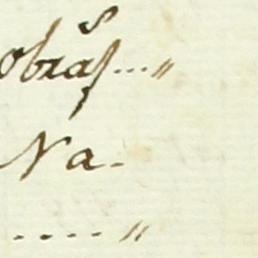 obras...〃
Na.
....〃